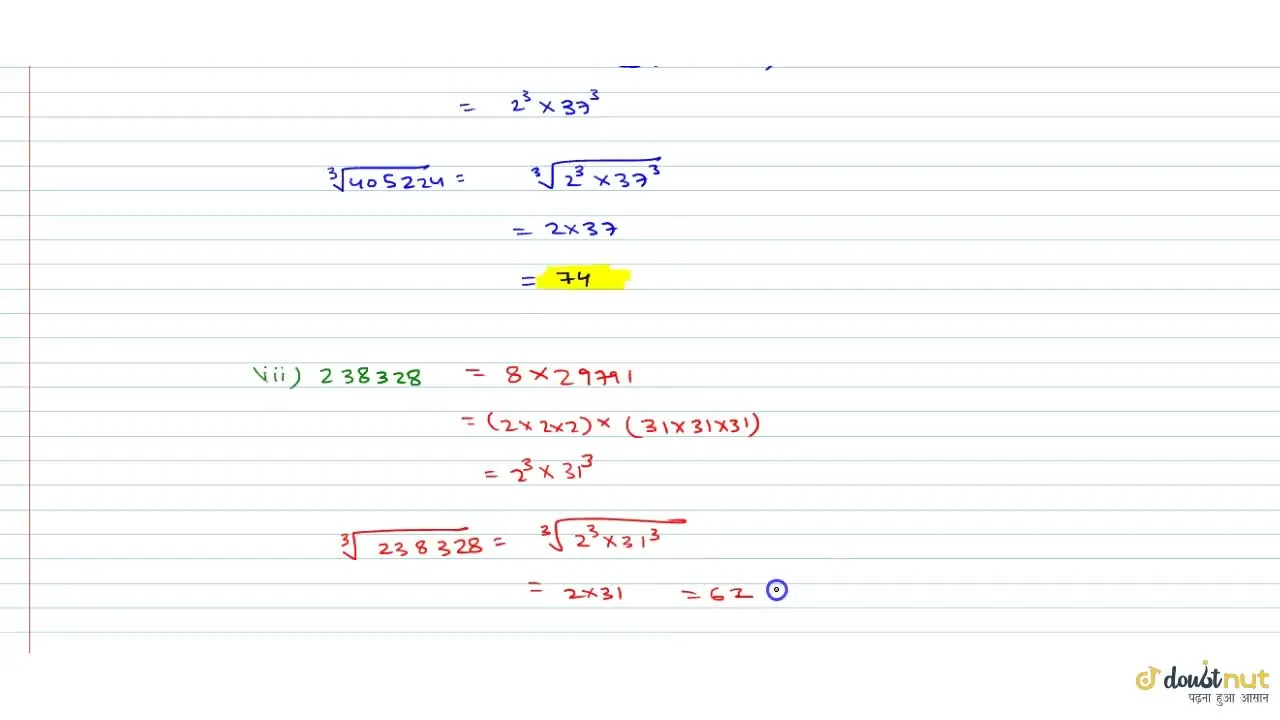 = 2³ × 37³
∛405224 = ∛2³ × 37³
= 2 × 37
= 74
vii) 238328 = 8 × 29791
= (2 × 2 × 2) × (31 × 31 × 31)
= 2³ × 31³
∛238328 = ∛2³ × 31³
= 2 × 31 = 62
doubtnut
पढ़ना हुआ आसान